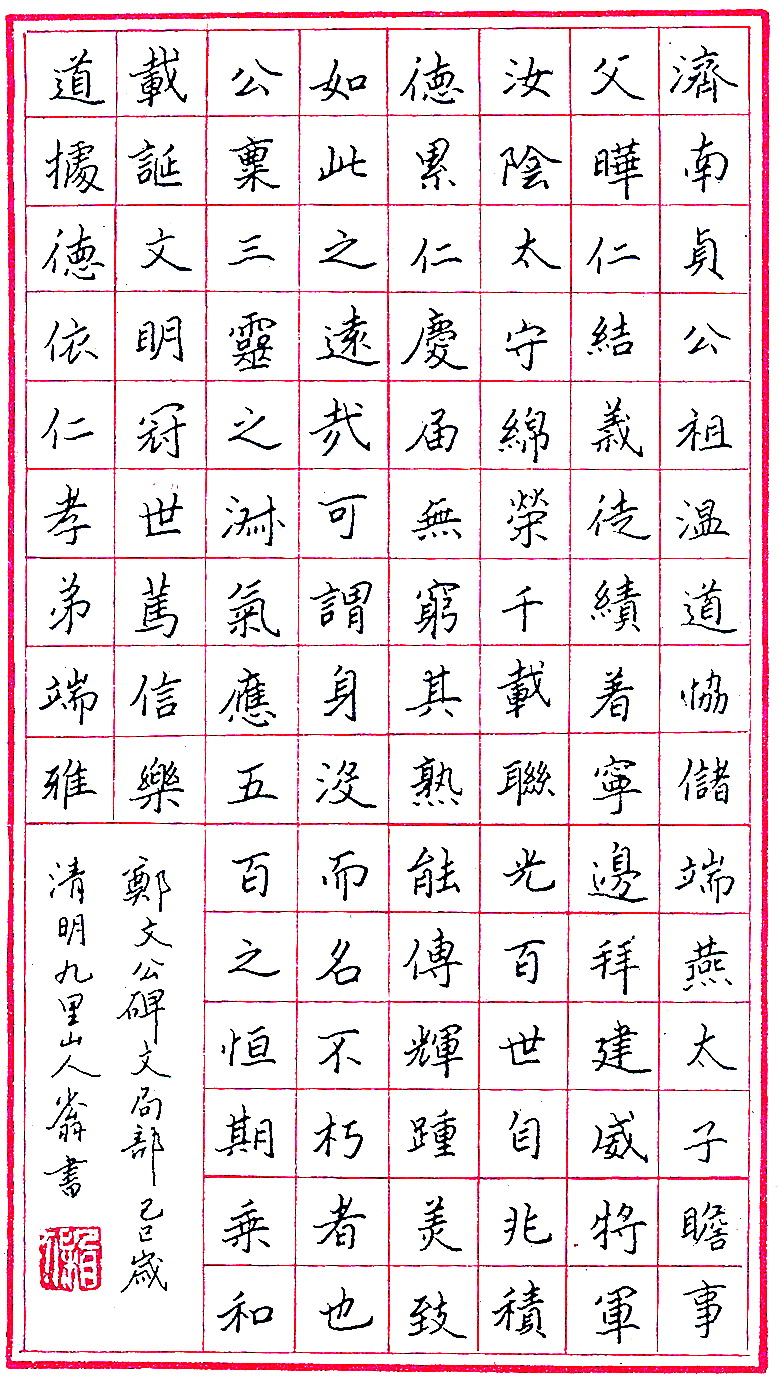 濟南貞公祖温道恊儲端燕太子瞻事
父曄仁結義徒績着寧邊拜建威將軍
汝陰太守綿榮千載聯光百世自兆積
德累仁慶届無窮其熟能傳輝踵美致
如此之遠哉可謂身没而名不朽者也
公稟三靈之淑氣應五百之恒期乘和
載誕文明冠世篤信樂
道據德依仁孝弟端雅
鄭文公碑文局部己巳歲
清明九里山人翁書